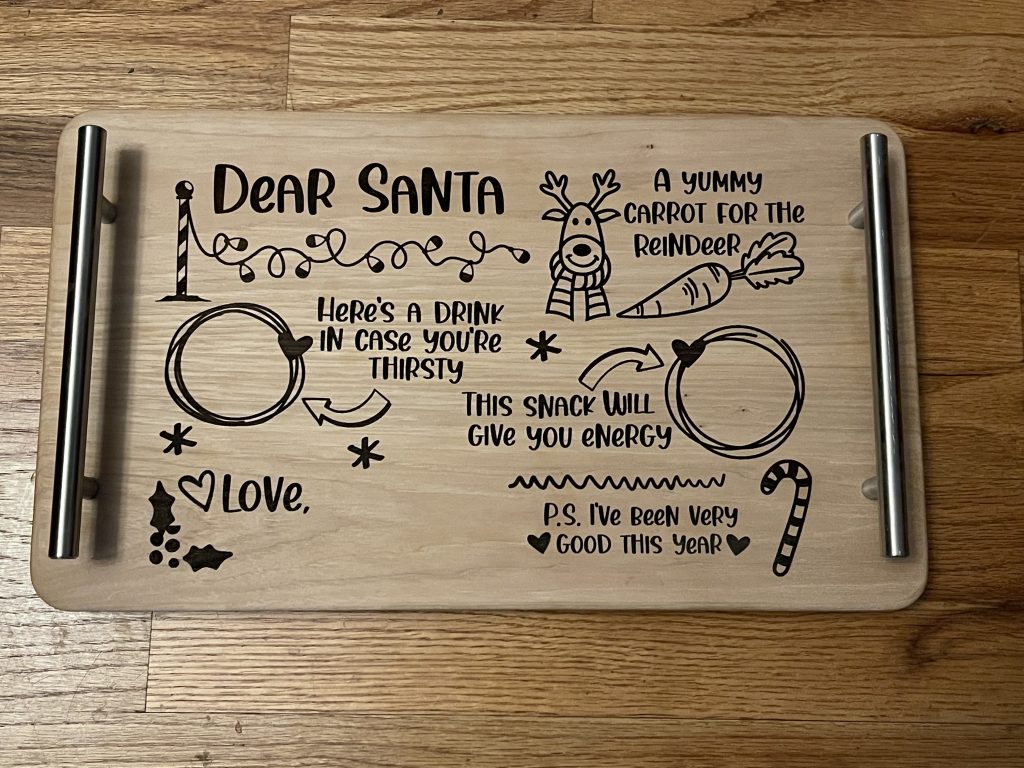 DEAR SANTA
A YUMMY
CARROT FOR THE
REINDEER
HERE'S A DRINK
IN CASE YOU'RE
THIRSTY
THIS SNACK WILL
GIVE YOU ENERGY
LOVE,
P.S. I'VE BEEN VERY
GOOD THIS YEAR